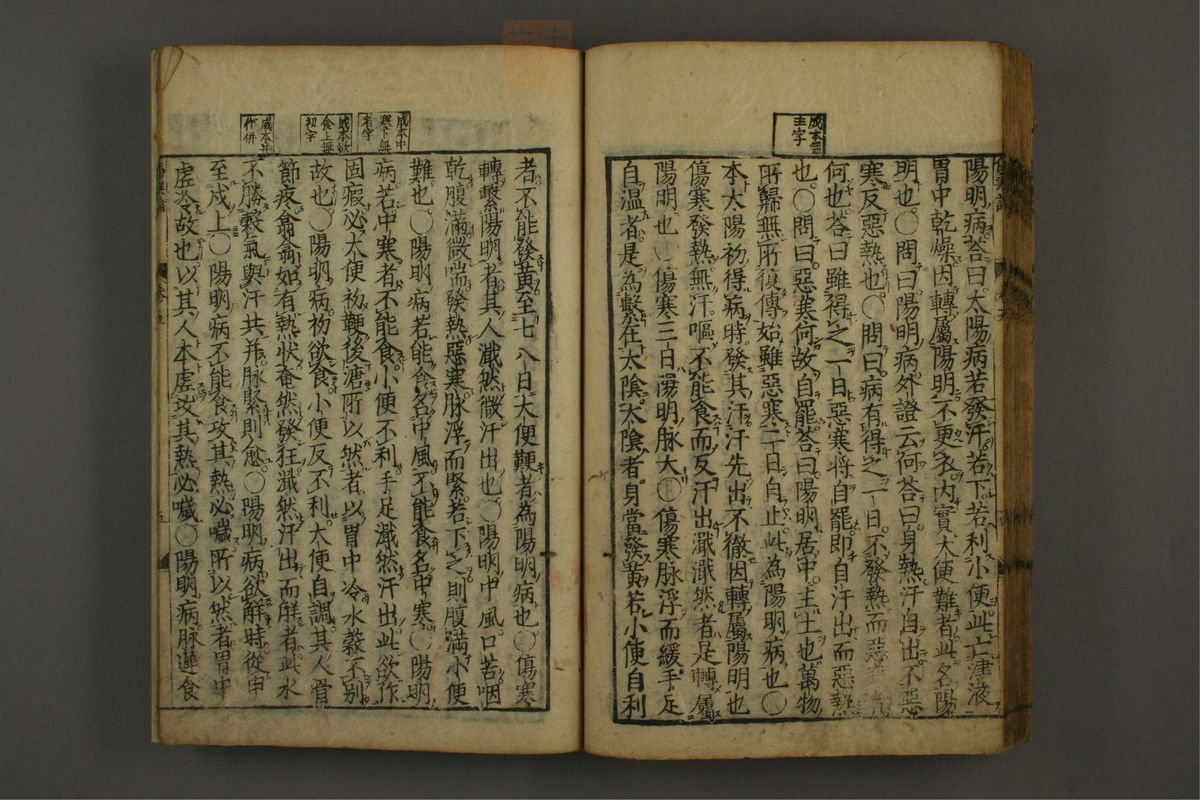 成本無
主字
陽明病荅曰太陽病若發汗若下若利小便此亡津液
胃中乾燥因轉屬陽明不更衣内實大便難者此名陽
明也○問曰陽明病外證云何荅曰身熱汗自出不惡
寒反惡熱也○問曰病有得之一日不發熱而惡寒者
何也荅曰雖得之一日惡寒將自罷即自汗出而惡熱
也○問曰惡寒何故自罷荅曰陽明居中主土也萬物
所歸無所復傳始雖惡寒二日自止此為陽明病也○
本太陽初得病時發其汗汗先出不徹因轉屬陽明也
傷寒發熱無汗嘔不能食而反汗出濈濈然者是轉屬
陽明也○傷寒三日陽明脉大○傷寒脉浮而緩手足
自温者是為繫在太陰太陰者身當發黃若小便自利
成本中
寒下無
者字
成本欲
食上無
初字
成本并
作併
者不能發黃至七八日大便鞕者為陽明病也○傷寒
轉繫陽明者其人濈然微汗出也○陽明中風口苦咽
乾腹滿微喘發熱惡寒脉浮而緊若下之則腹滿小便
難也○陽明病若能食名中風不能食名中寒○陽明
病若中寒者不能食小便不利手足濈然汗出此欲作
固瘕必大便初鞕後溏所以然者以胃中冷水穀不别
故也○陽明病初欲食小便反不利大便自調其人骨
節疼翕翕如有熱狀奄然發狂濈然汗出而解者此水
不勝穀氣與汗共并脉緊則愈○陽明病欲解時從申
至戌上○陽明病不能食攻其熱必噦所以然者胃中
虛冷故也以其人本虛攻其熱必噦○陽明病脉遲食